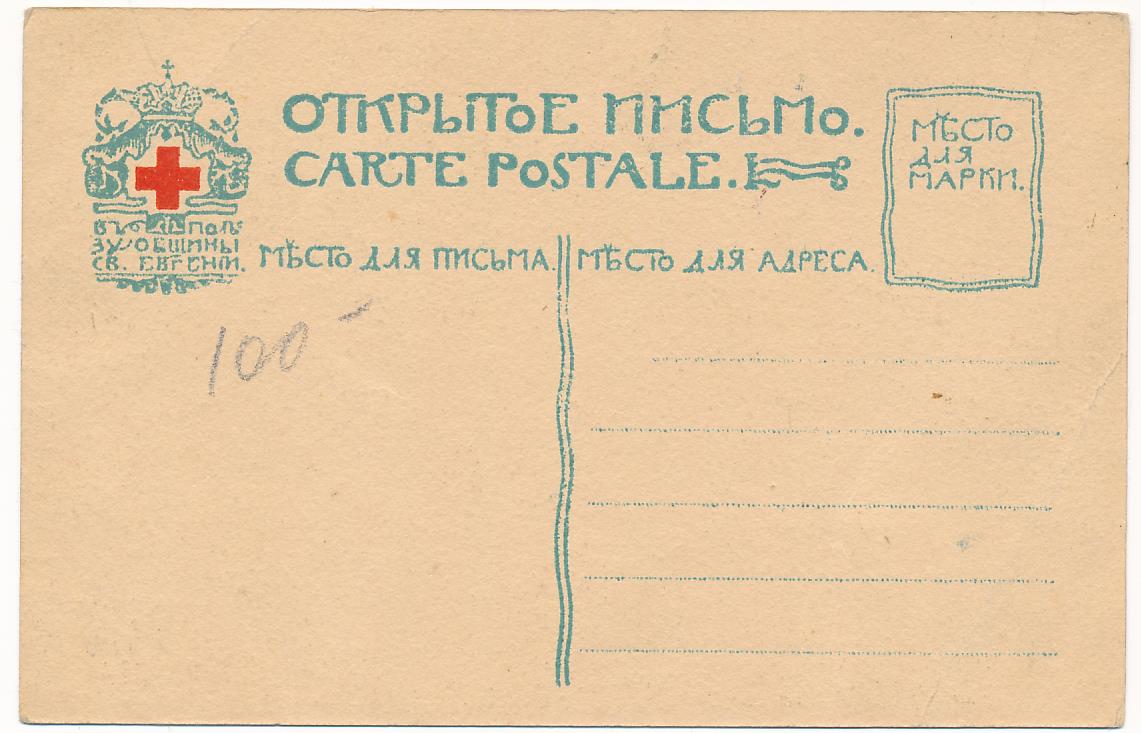 ОТКРЫТОЕ ПИСЬМО.
CARTE POSTALE.
МѢСТО
ДЛЯ
МАРКИ.
ВЪ ПОЛЬ
ЗУ ОБЩИНЫ
СВ. ЕВГЕНІИ.
МѢСТО ДЛЯ ПИСЬМА.
МѢСТО ДЛЯ АДРЕСА.
100 -